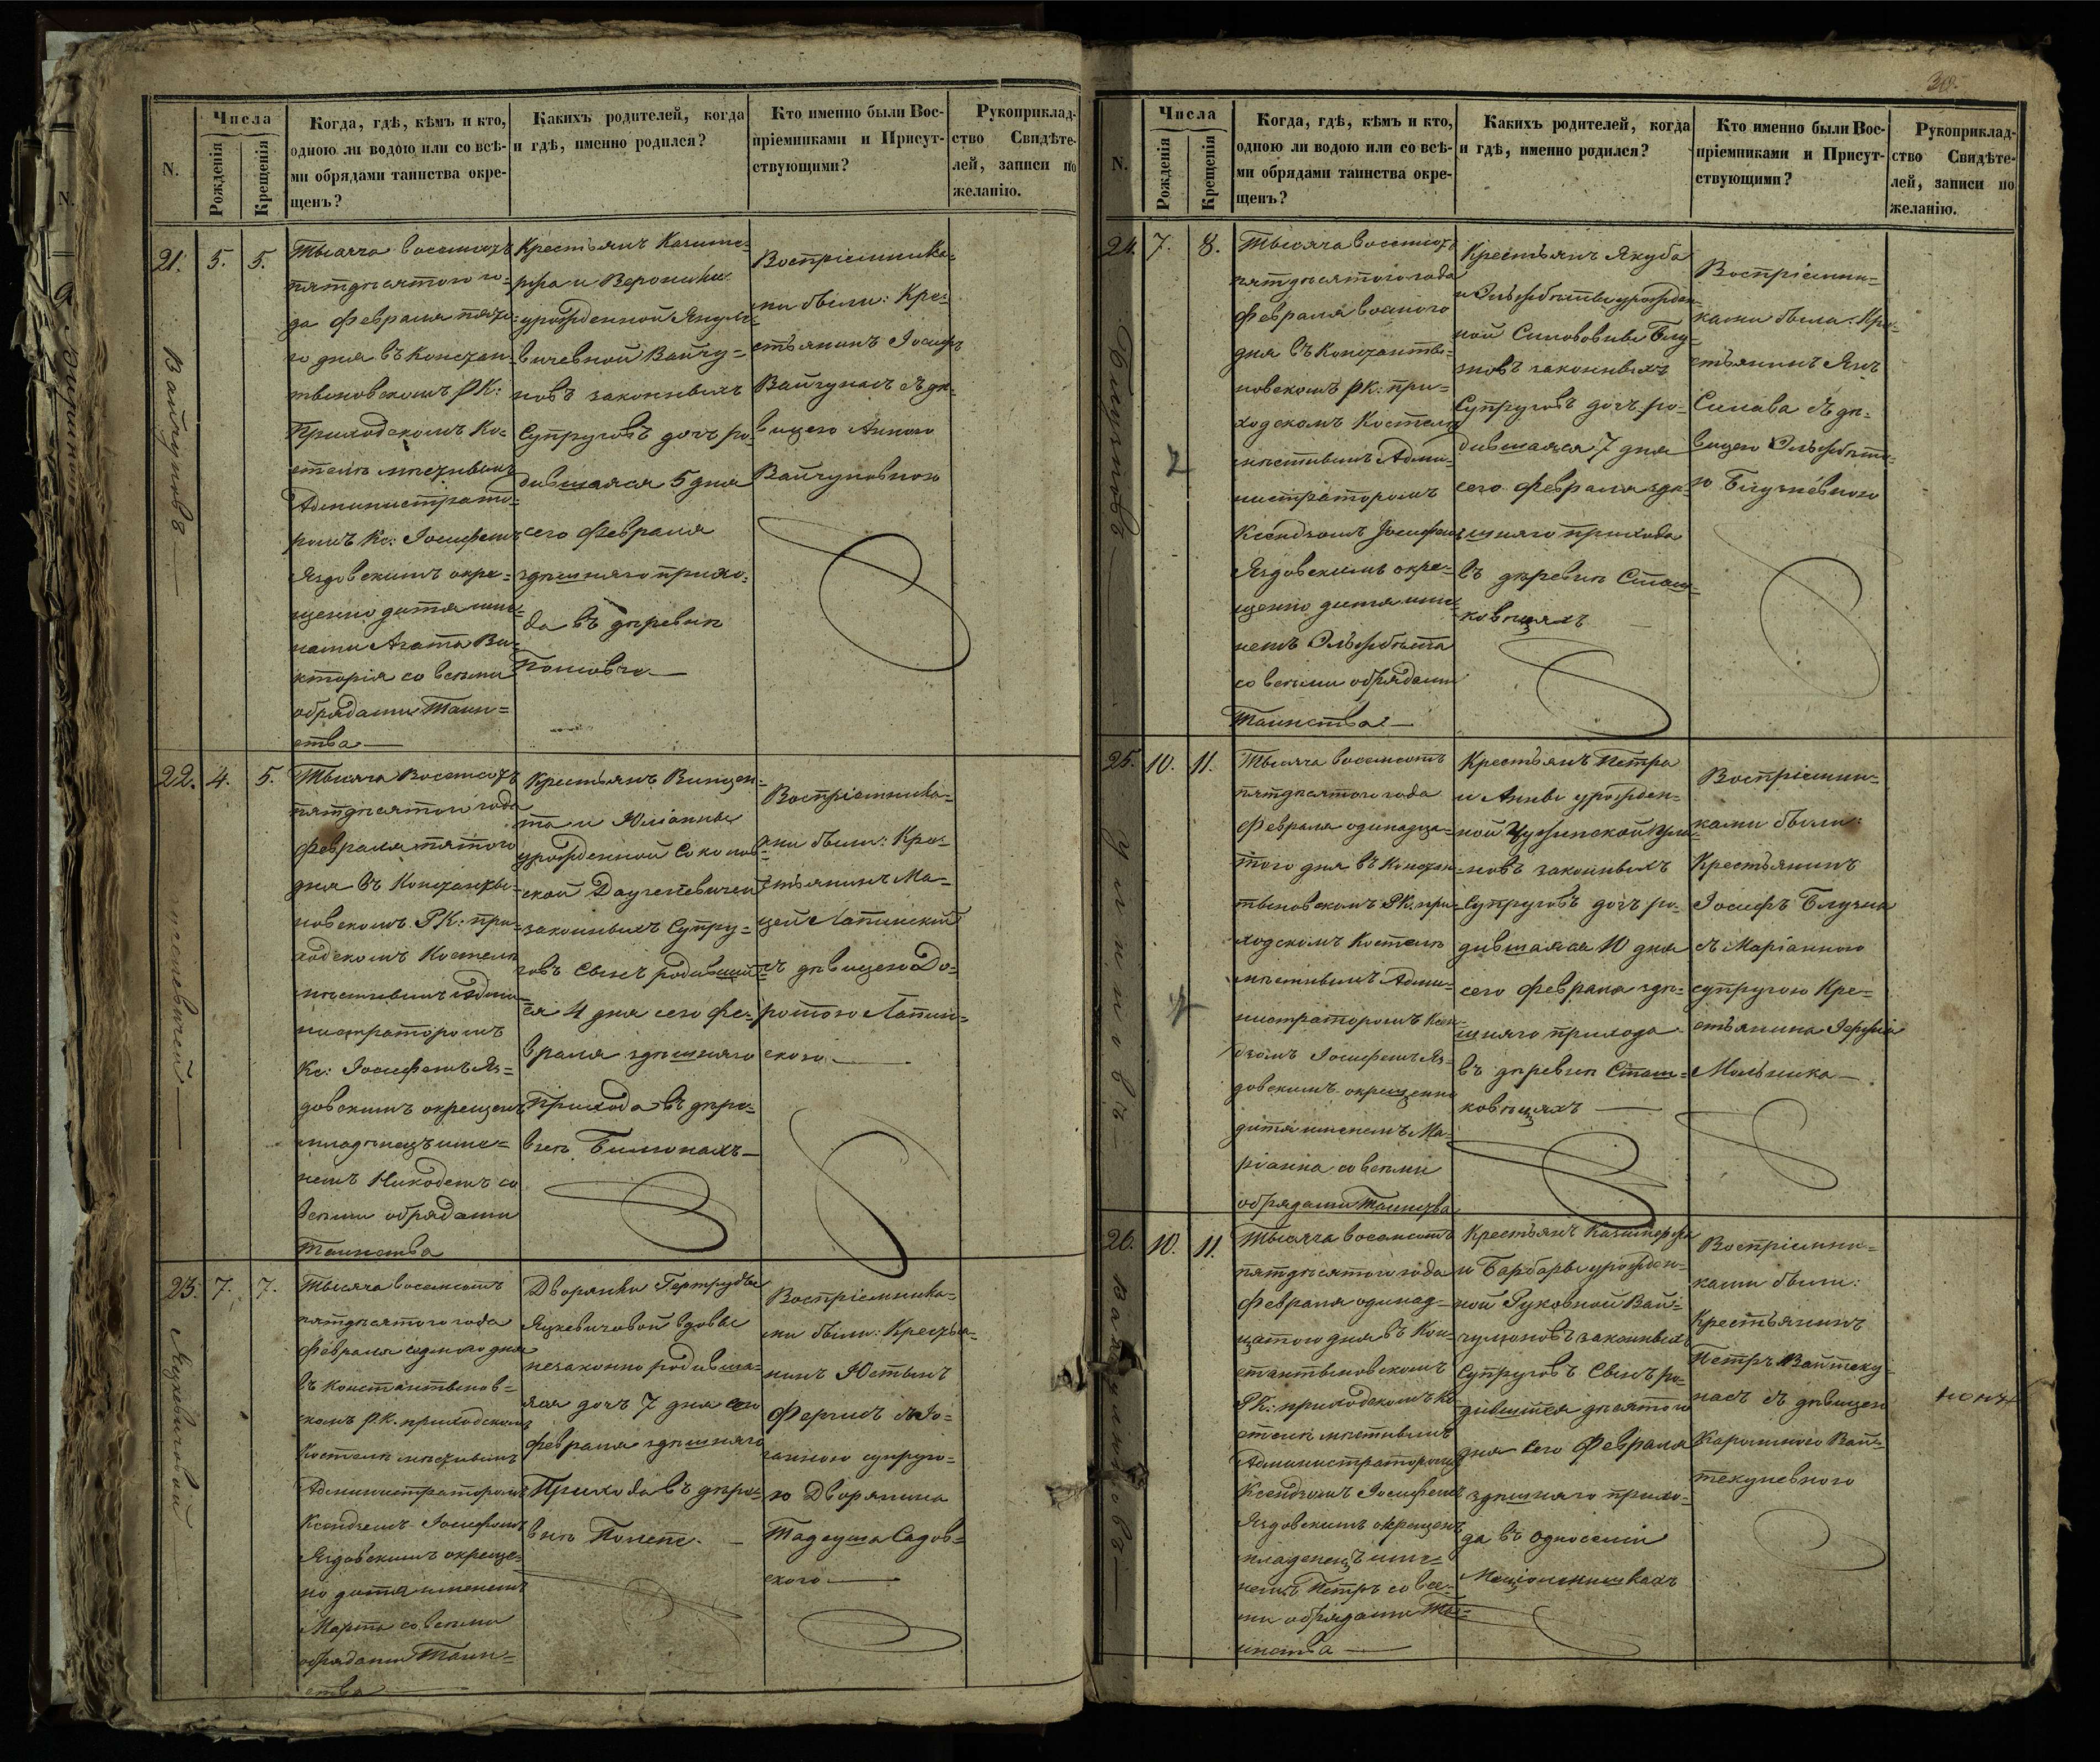 N.
Числа
Рожденія
Крещенія
Когда, гдѣ, кѣмъ и кто,
одною ли водою или со всѣ-
ми обрядами таинства окре-
щенъ?
Какихъ родителей, когда
и гдѣ, именно родился?
Кто именно были Вос-
пріемниками и Присут-
ствующими?
Рукоприклад-
ство Свидѣте-
лей, записи по
желанію.
21.
5.
5.
Тысяча восемсотъ
пятдесятого го-
да Февраля пято-
го дня въ Констан-
тыновскомъ РК:
Приходскомъ Ко-
стелѣ мѣстнымъ
Администрато-
ромъ Кс: Іосифомъ
Яздовскимъ окре-
щенно дитя име-
нами Агата Ви-
кторія со всѣми
обрядами Таин-
ства
Крестьянъ Казими-
ржа и Вероники
урожденной
Вайчу-
новъ законныхъ
Супруговъ дочь ро-
дившаяся 5 дня
сего Февраля
здѣшняго прихо-
да въ деревнѣ
Воспріемника-
ми были: Кре-
стьянинъ Іосифъ
Вайчунасъ съ дѣ-
вицею Анною
Вайчуновною
22.
4.
5.
Тысяча Восемсотъ
пятдесятого года
Февраля пятого
дня въ Константы-
новскомъ РК: при-
ходскомъ Костелѣ
мѣстнымъ Адми-
нистраторомъ
Кс: Іосифомъ Яз-
довскимъ окрещенъ
младенецъ име-
немъ Никодемъ со
всѣми обрядами
Таинства
Крестьянъ Винцен-
та и Юліанны
урожденной
законныхъ Супру-
говъ Сынъ родивший-
ся 4 дня сего Фе-
враля здѣшняго
Прихода въ дере-
внѣ
Воспріемника-
ми были: Кре-
стьянинъ Ма-
цей Лапинскій
съ дѣвицею До-
ротою Лапин-
скою
23.
7.
7.
Тысяча восемсотъ
пятдесятого года
Февраля седмого дня
въ Константынов-
скомъ РК. приходскомъ
Костелѣ мѣстнымъ
Администраторомъ
Ксендзомъ Іосифомъ
Яздовскимъ окреще-
но дитя именемъ
Марта со всѣми
обрядами Таин-
ства
Дворянки Гертруды
Яцкевичовой вдовы
незаконно родивша-
яся дочь 7 дня сего
Февраля здѣшняго
Прихода въ дере-
внѣ
Воспріемника-
ми были: Крестья-
нинъ Юстынъ
съ Іо-
ганною супруго-
ю Дворянина
Тадеуша Садов-
ского
N.
Числа
Рожденія
Крещенія
Когда, гдѣ, кѣмъ и кто,
одною ли водою или со всѣ-
ми обрядами таинства окре-
щенъ?
Какихъ родителей, когда
и гдѣ, именно родился?
Кто именно были Вос-
пріемниками и Присут-
ствующими?
Рукоприклад-
ство Свидѣте-
лей, записи по
желанію.
24.
7.
8.
Тысяча восемсотъ
пятдесятого года
Февраля восмого
дня въ Константы-
новскомъ РК: при-
ходскомъ Костелѣ
мѣстнымъ Адми-
нистраторомъ
Ксендзомъ Іосифомъ
Яздовскимъ окре-
щенно дитя име-
немъ Эльжбѣта
со всѣми обрядами
Таинства
Крестьянъ Якуба
и Эльжбѣты урожден-
ной
законныхъ
Супруговъ дочь ро-
дившаяся 7 дня
сего Февраля здѣ-
шняго прихода
въ деревнѣ Сташ-
ковщяхъ
Воспріемни-
ками были: Кре-
стьянинъ Янъ
съ дѣ-
вицею Эльжбѣто-
ю
25.
10.
11.
Тысяча восемсотъ
пятдесятого года
Февраля одинадца-
того дня въ Констан-
тыновскомъ РК. при-
ходскомъ Костелѣ
мѣстнымъ Адми-
нистраторомъ Ксен-
дзомъ Іосифомъ Яз-
довскимъ окрещенно
дитя именемъ Ма-
ріанна со всѣми
обрядами Таинства
Крестьянъ Петра
и Анны урожден-
ной
новъ законныхъ
Супруговъ дочь ро-
дившаяся 10 дня
сего Февраля здѣ-
шняго прихода
въ деревнѣ Сташ-
ковщяхъ
Воспріемни-
ками были:
Крестьянинъ
Іосифъ
съ Маріанною
супругою Кре-
стьянина
Мельника
26.
10.
11.
Тысяча восемсотъ
пятдесятого года
Февраля одинад-
цатого дня въ Кон-
стантыновскомъ
РК: приходскомъ Ко-
стелѣ мѣстнымъ
Администраторомъ
Ксендзомъ Іосифомъ
Яздовскимъ окрещенъ
младенецъ име-
немъ Петръ со все-
ми обрядами Та-
инства
Крестьянъ Казимержа
и Барбары урожден-
ной Вай-
чуліоновъ законныхъ
Супруговъ Сынъ ро-
дившійся десятого
дня сего Февраля
здѣшняго прихо-
да въ односеліи
Воспріемни-
ками были:
Крестьянинъ
Петръ Вайтеку-
насъ съ дѣвицею
Каролиною Вай-
текуневною